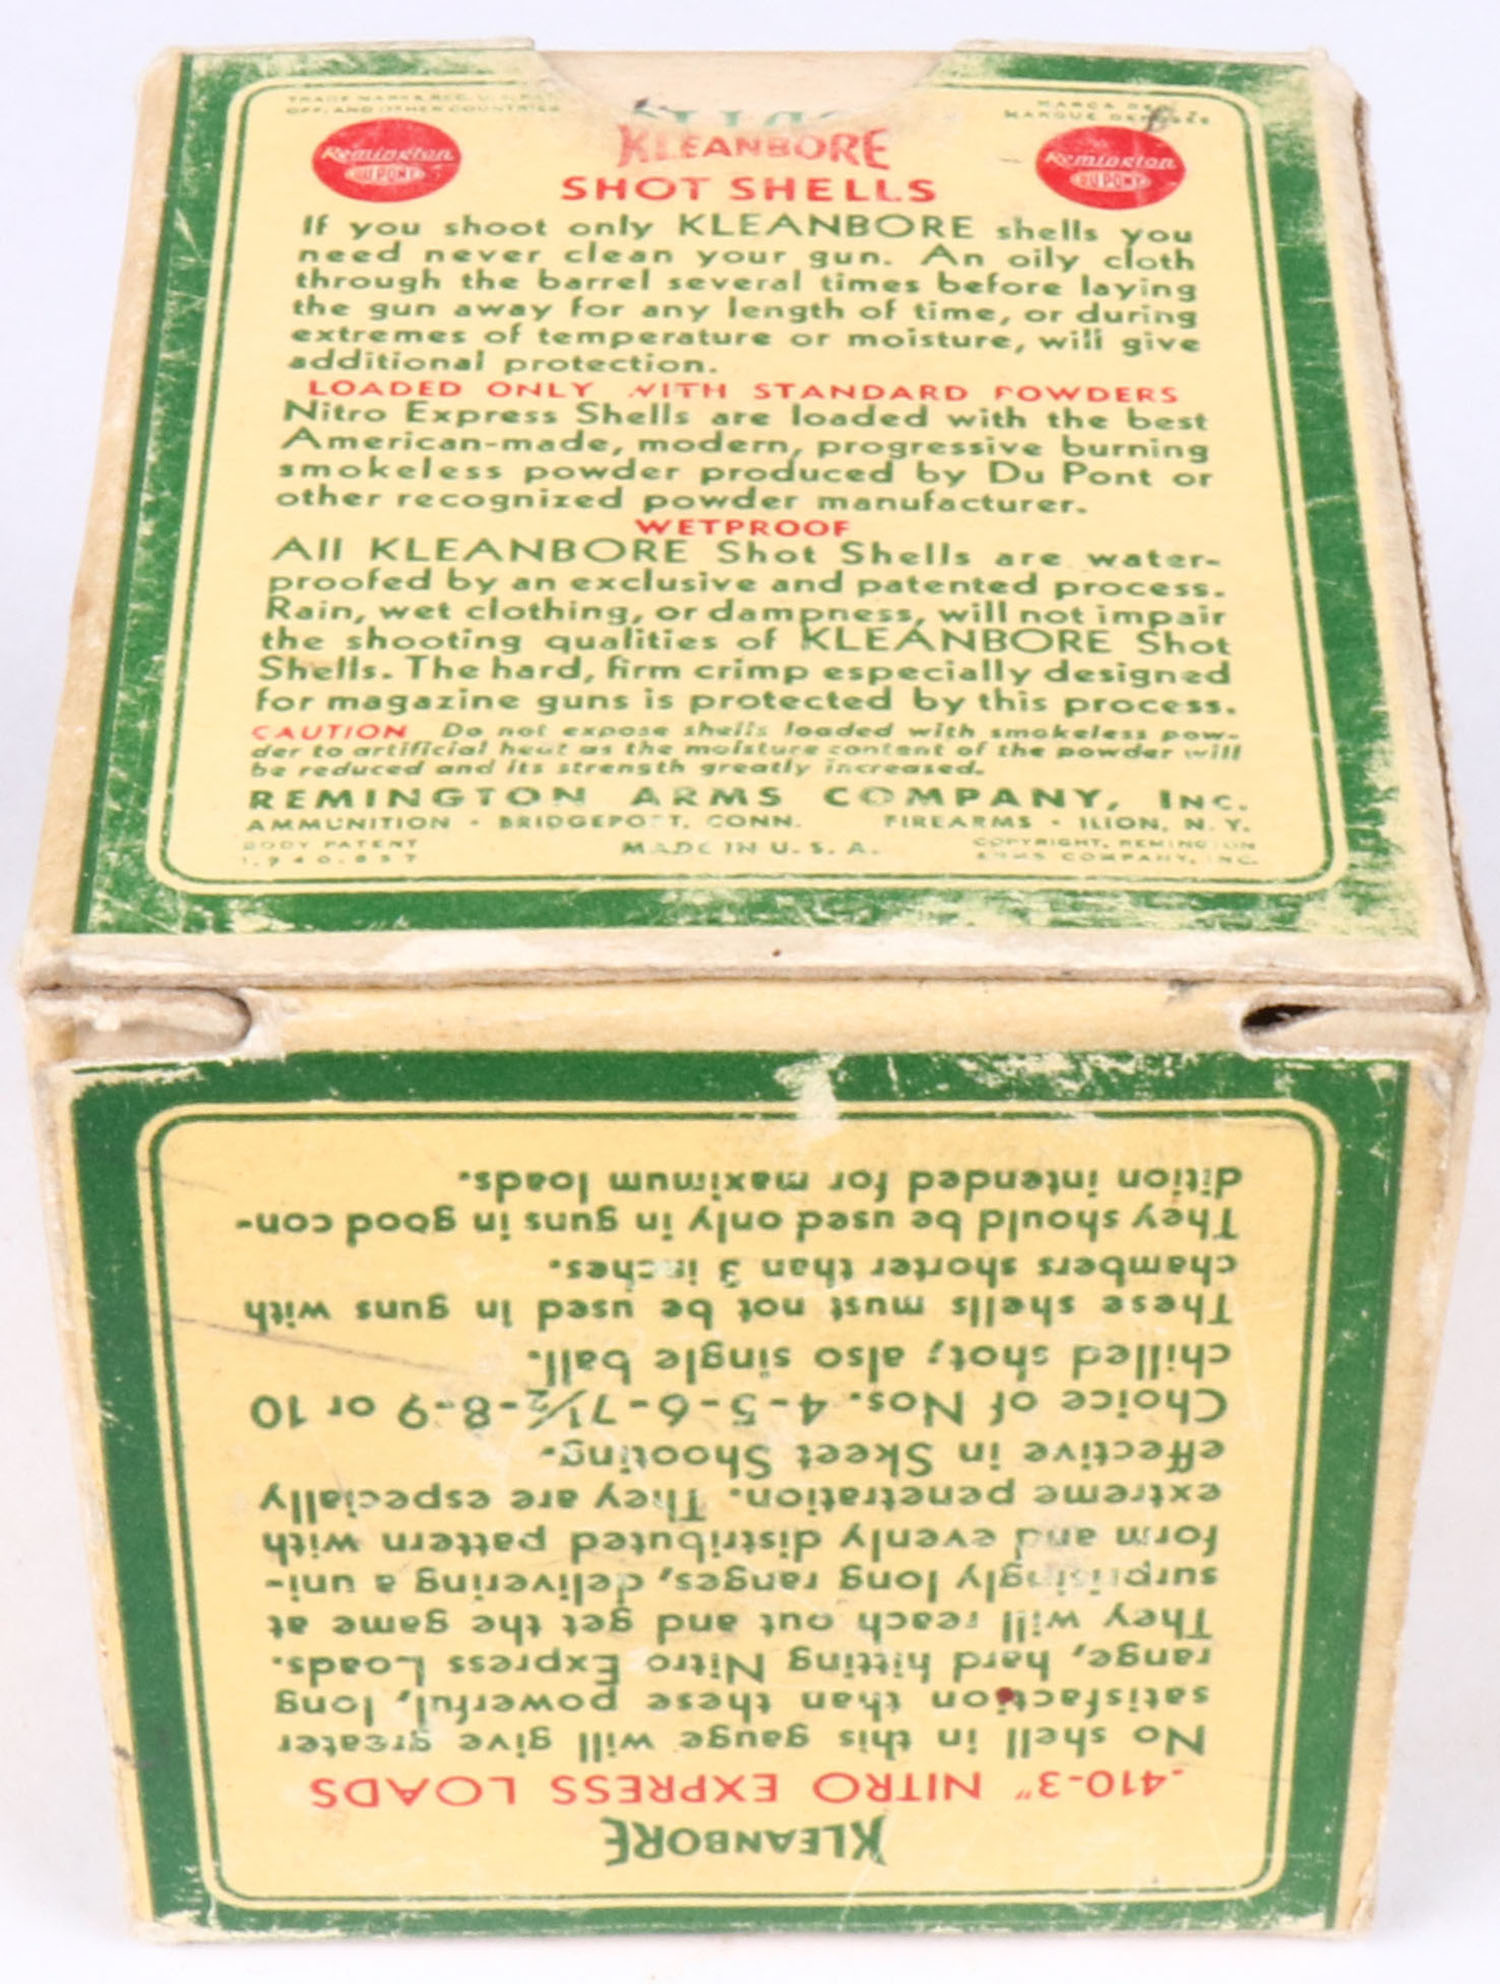 TRADE MARKS REG. U. S. PAT.
OFF. AND OTHER COUNTRIES
MARCA REG
MARQUE DEPOSEE
Remington
DU PONT
Remington
DU PONT
KLEANBORE
SHOT SHELLS
If you shoot only KLEANBORE shells you
need never clean your gun. An oily cloth
through the barrel several times before laying
the gun away for any length of time, or during
extremes of temperature or moisture, will give
additional protection.
LOADED ONLY WITH STANDARD POWDERS
Nitro Express Shells are loaded with the best
American-made, modern, progressive burning
smokeless powder produced by Du Pont or
other recognized powder manufacturer.
WETPROOF
All KLEANBORE Shot Shells are water-
proofed by an exclusive and patented process.
Rain, wet clothing, or dampness, will not impair
the shooting qualities of KLEANBORE Shot
Shells. The hard, firm crimp especially designed
for magazine guns is protected by this process.
CAUTION Do not expose shells loaded with smokeless pow-
der to artificial heat as the moisture content of the powder will
be reduced and its strength greatly increased.
REMINGTON ARMS COMPANY, INC.
AMMUNITION • BRIDGEPORT, CONN. FIREARMS • ILION, N. Y.
BODY PATENT
1,940,837
MADE IN U. S. A.
COPYRIGHT, REMINGTON
ARMS COMPANY, INC.
KLEANBORE
.410-3" NITRO EXPRESS LOADS
No shell in this gauge will give greater
satisfaction than these powerful, long
range, hard hitting Nitro Express Loads.
They will reach out and get the game at
surprisingly long ranges, delivering a uni-
form and evenly distributed pattern with
extreme penetration. They are especially
effective in Skeet Shooting.
Choice of Nos. 4-5-6-7½-8-9 or 10
chilled shot; also single ball.
These shells must not be used in guns with
chambers shorter than 3 inches.
They should be used only in guns in good con-
dition intended for maximum loads.